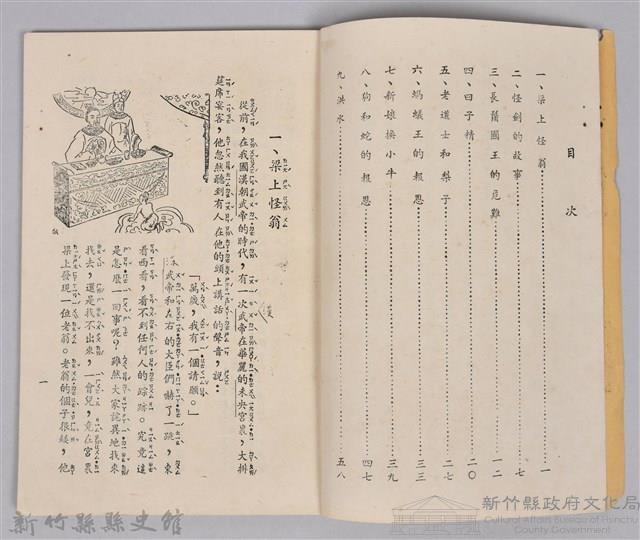 目次
一、梁上怪翁 一
二、怪劍的故事 七
三、長鬚國王的危難 一二
四、臼子精 二〇
五、老道士和梨子 二七
六、螞蟻王的報恩 三三
七、新娘換小牛 三九
八、狗和蛇的報恩 四七
九、洪水 五八
一、梁上怪翁
從前，在我國漢朝武帝的時代，有一次武帝在華麗的未央宮裏，大排
筵席宴客，他忽然聽到有人在他的頭上講話的聲音，說：
「萬歲，我有一個請願。」
武帝和左右的大臣們嚇了一跳，東
看西看，看不到任何人的踪跡。究竟這
是怎麼一回事呢？雖然大家詫異地找來
找去，還是找不出來，一會兒，竟在宮裏
梁上發現一位老翁。老翁的個子很矮，他
一
漢
新竹縣縣史館
新竹縣政府文化局
Cultural Affairs Bureau of Hsinchu
County Government